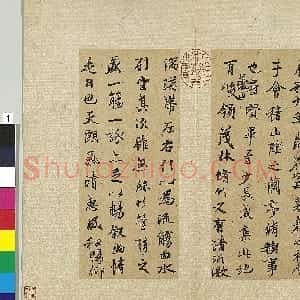 于會稽山陰之蘭亭脩稧事
也群賢畢至少長咸集此地
崇山
有峻領茂林脩竹又有清流激
湍暎帶左右引以為流觴曲水
列坐其次雖無絲竹管弦之
盛一觴一詠亦足以暢叙幽情
是日也天朗氣清惠風和暢仰
1